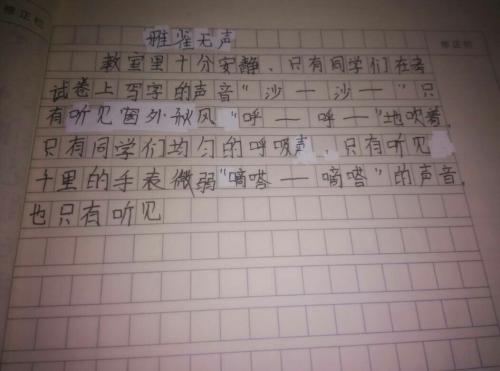 修正栏
修正栏
雅雀无声
教室里十分安静、只有同学们在考
试卷上写字的声音"沙—沙—"只
有听见窗外秋风"呼—呼—"地吹着.
只有同学们均匀的呼吸声、只有听见
十里的手表微弱"嘀嗒—嘀嗒"的声音.
也只有听见